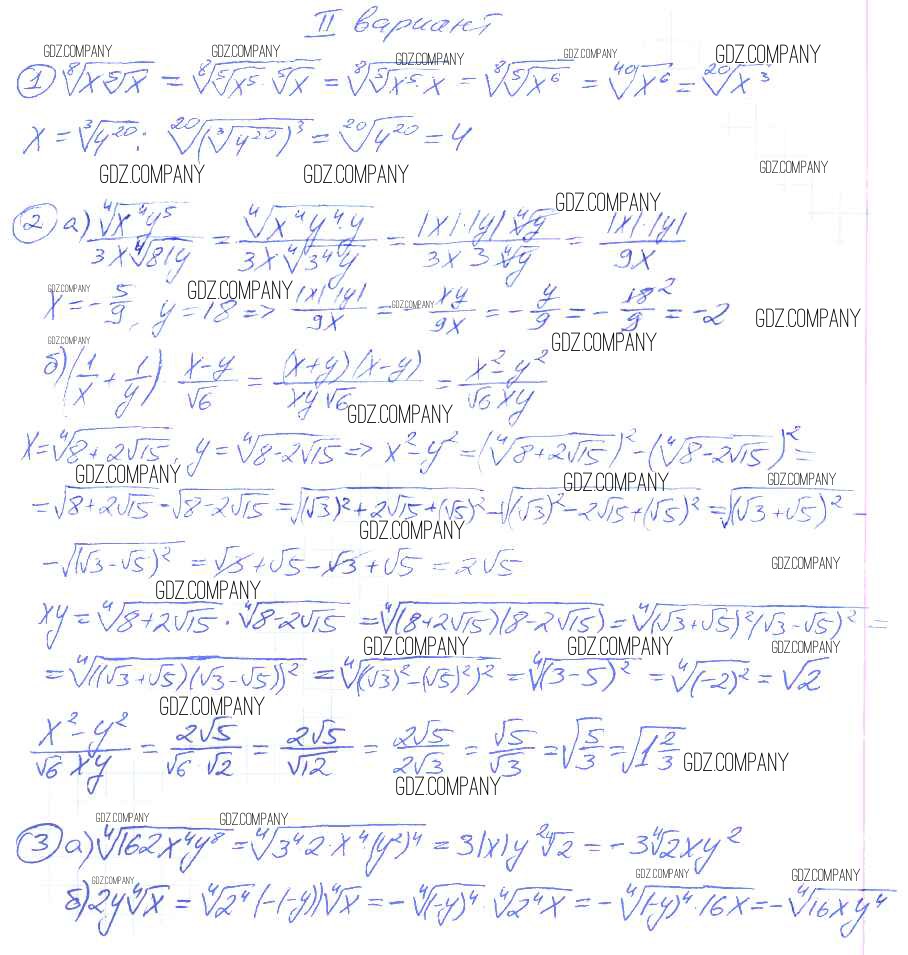 II вариант
GDZ.COMPANY GDZ.COMPANY GDZ.COMPANY GDZ.COMPANY GDZ.COMPANY
① ⁸√(x ⁵√x) = ⁸√(⁵√x⁵ · ⁵√x) = ⁸√(⁵√(x⁵ · x)) = ⁸√(⁵√x⁶) = ⁴⁰√x⁶ = ²⁰√x³
x = ³√4²⁰ : ²⁰√((³√4²⁰)³) = ²⁰√4²⁰ = 4
GDZ.COMPANY GDZ.COMPANY GDZ.COMPANY
② а) ⁴√(x⁴y⁵) / (3x ⁴√(81y)) = ⁴√(x⁴y⁴·y) / (3x ⁴√(3⁴y)) = |x|·|y| ⁴√y / (3x 3 ⁴√y) = |x|·|y| / 9x
GDZ.COMPANY
GDZ.COMPANY GDZ.COMPANY GDZ.COMPANY GDZ.COMPANY
x = -5/9, y = 18 => |x|·|y| / 9x = -xy/9x = -y/9 = -18/9 = -2
GDZ.COMPANY GDZ.COMPANY
б) (1/x + 1/y) (x-y)/√6 = (x+y)(x-y) / (xy√6) = (x²-y²) / (√6 xy)
GDZ.COMPANY
x = ⁴√(8+2√15), y = ⁴√(8-2√15) => x²-y² = (⁴√(8+2√15))² - (⁴√(8-2√15))² =
GDZ.COMPANY GDZ.COMPANY GDZ.COMPANY
= √(8+2√15) - √(8-2√15) = √((√3)²+2√15+(√5)²) - √((√3)²-2√15+(√5)²) = √((√3+√5)²) -
GDZ.COMPANY
- √((√3-√5)²) = √3+√5-√3+√5 = 2√5
GDZ.COMPANY GDZ.COMPANY
xy = ⁴√(8+2√15) · ⁴√(8-2√15) = ⁴√((8+2√15)(8-2√15)) = ⁴√((√3+√5)²(√3-√5)²) =
GDZ.COMPANY GDZ.COMPANY GDZ.COMPANY
= ⁴√(((√3+√5)(√3-√5))²) = ⁴√(((√3)²-(√5)²)²) = ⁴√((3-5)²) = ⁴√((-2)²) = √2
GDZ.COMPANY
(x²-y²) / (√6 xy) = 2√5 / (√6·√2) = 2√5/√12 = 2√5/2√3 = √5/√3 = √(5/3) = √(1 2/3)
GDZ.COMPANY GDZ.COMPANY
GDZ.COMPANY GDZ.COMPANY
③ а) ⁴√(162x⁴y⁸) = ⁴√(3⁴2·x⁴(y²)⁴) = 3|x|y² ⁴√2 = -3 ⁴√2 xy²
GDZ.COMPANY GDZ.COMPANY GDZ.COMPANY
б) 2y ⁴√x = ⁴√2⁴ (-(-y)) ⁴√x = -⁴√((-y)⁴) · ⁴√(2⁴x) = -⁴√((-y)⁴·16x) = -⁴√(16xy⁴)